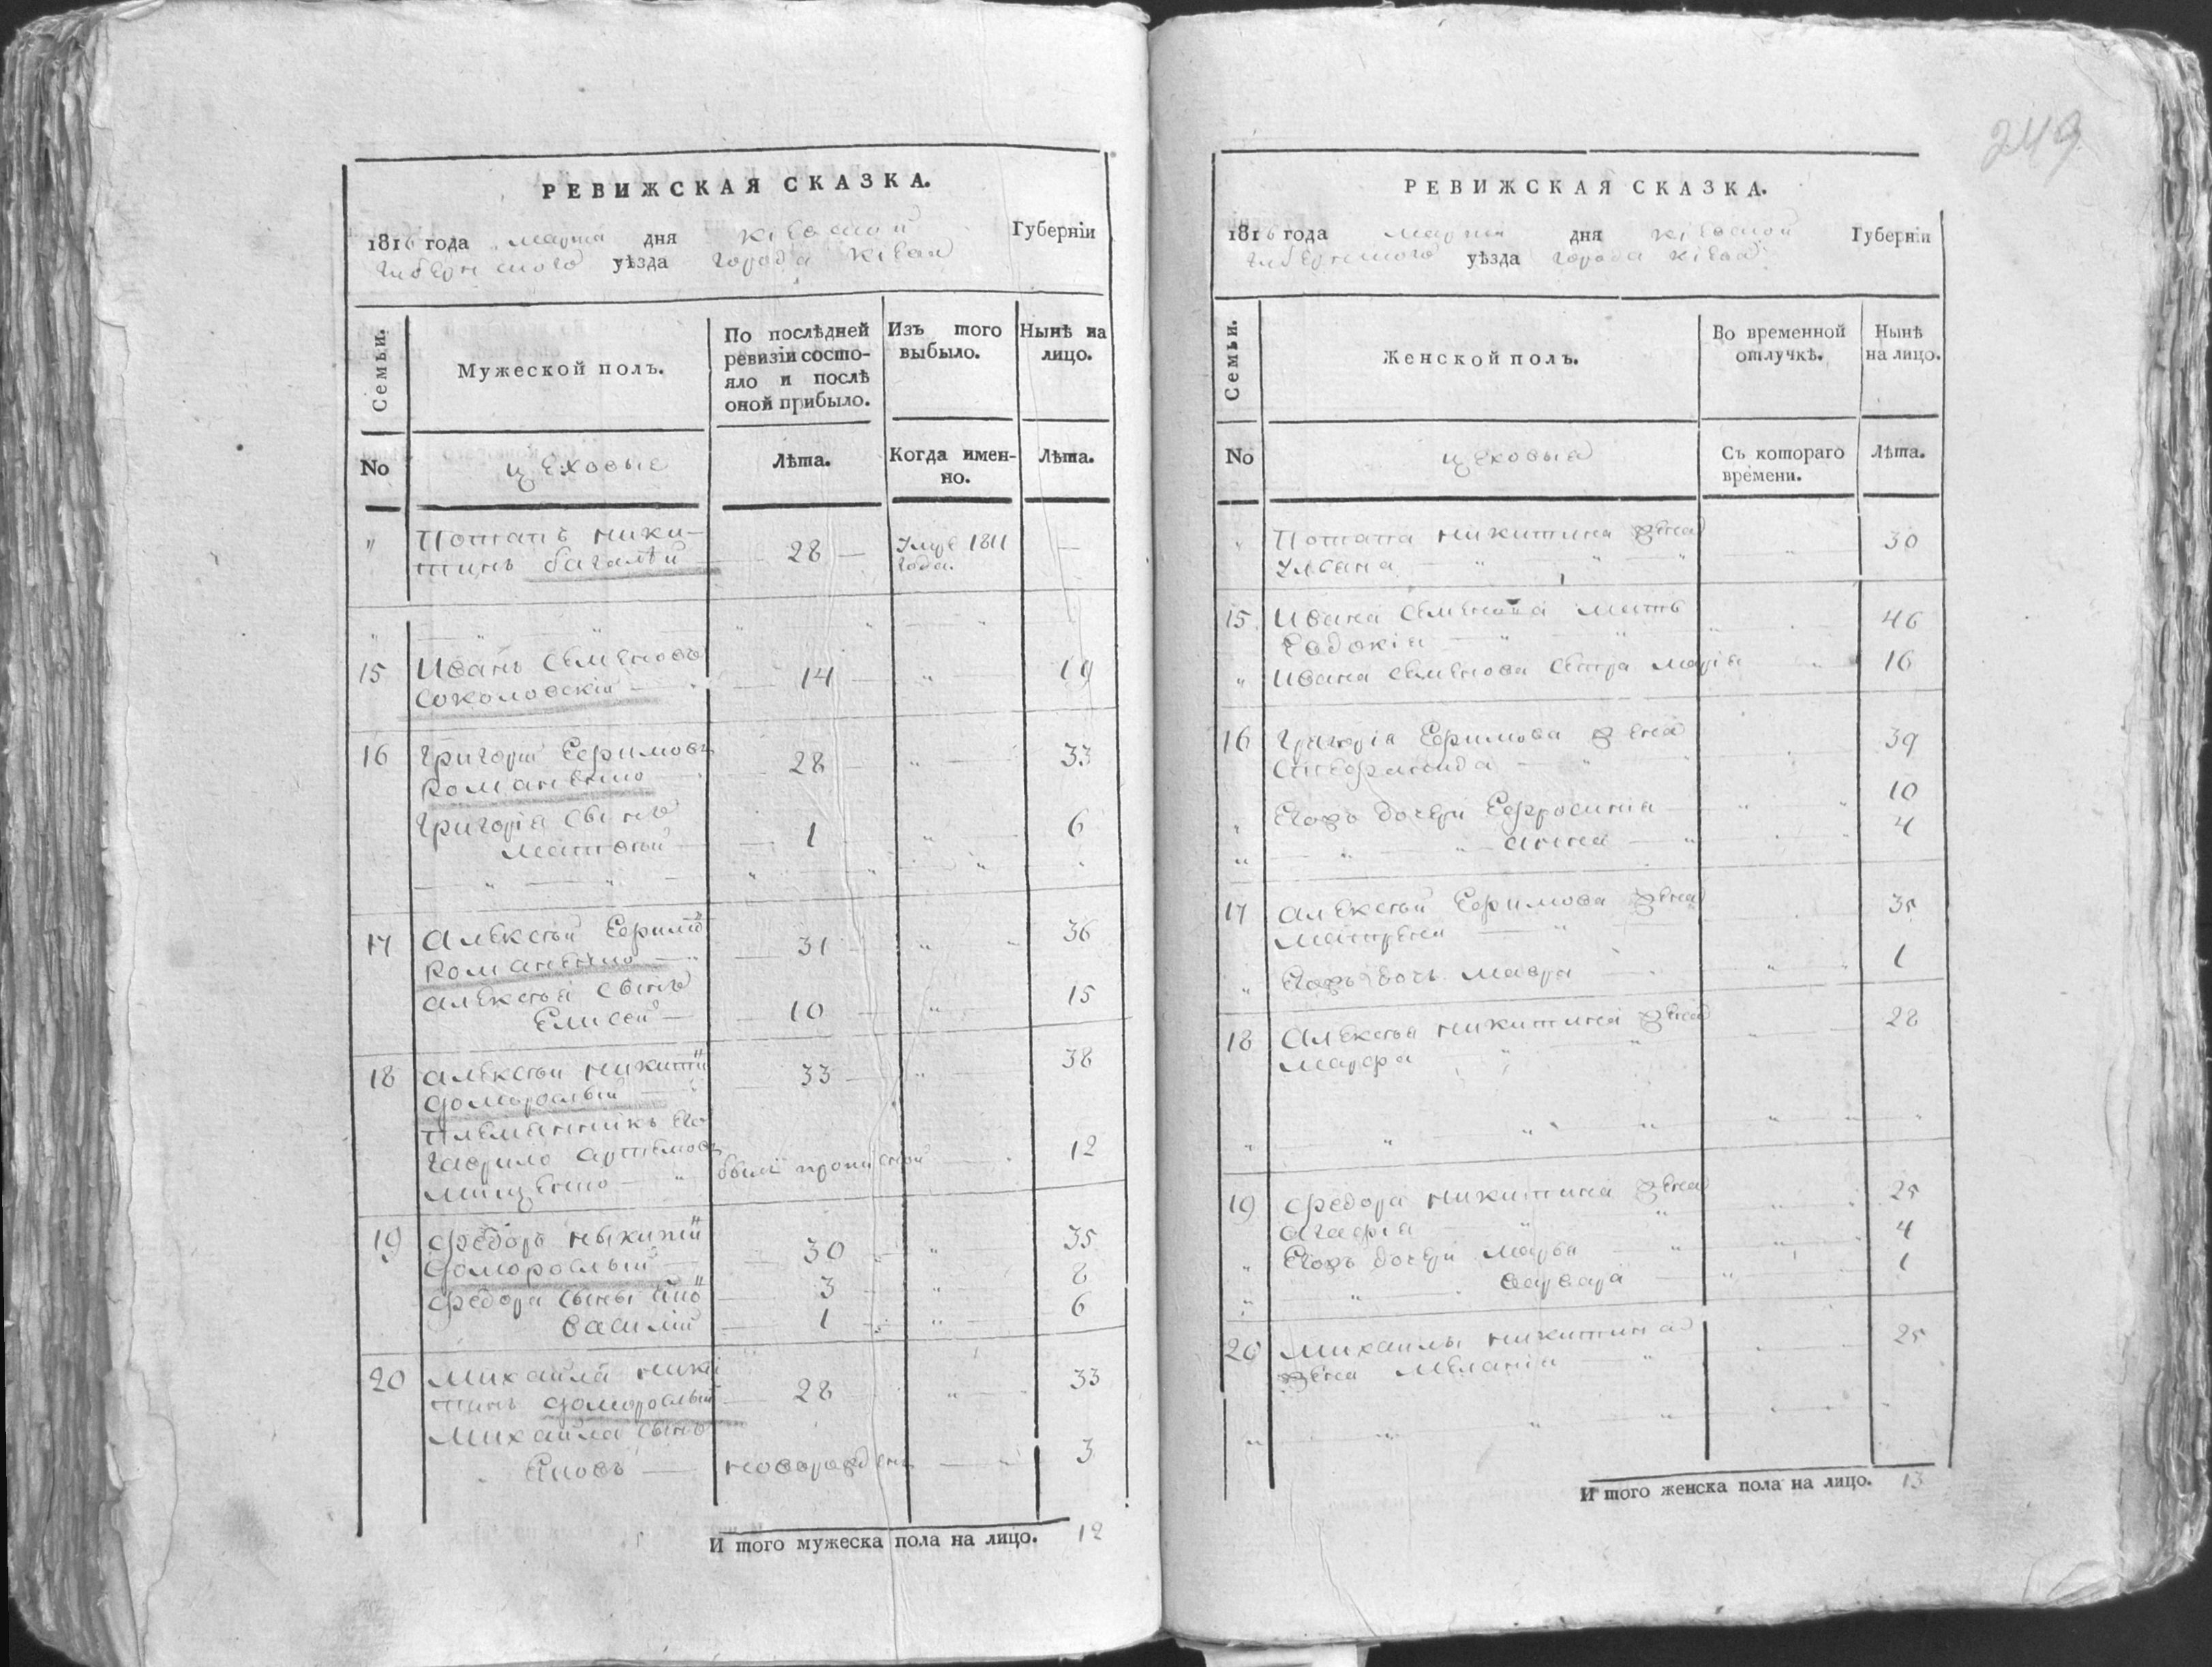 249
РЕВИЖСКАЯ СКАЗКА.
1816 года марта дня Кіевской Губерніи
Губернского уѣзда города Кіева
Семьи.
Мужеской полъ.
По послѣдней ревизіи состояло и послѣ оной прибыло.
Изъ того выбыло.
Нынѣ на лицо.
No
цеховые
Лѣта.
Когда именно.
Лѣта.
" Потапъ Ники-
тинъ Багалѣй 28 — Умре 1811 года. —
15 Иванъ Семеновъ
Соколовскій 14 " 19
16 Григорій Ефимовъ
Романенко 28 " 33
Григорія сынъ
Матвѣй 1 " 6
17 Алексѣй Ефимо
Романенко 31 " 36
Алексѣя сынъ
Елисей 10 " 15
18 Алексѣй Никити
Доморослый 33 " 38
Племянникъ его
Гаврило Артемовъ
Мищенко — " былъ прописной 12
19 Федоръ Никити
Доморослый 30 " 35
Федора сыны 3 " 8
Василій 1 " 6
20 Михайла Ники
тинъ Доморослый 28 " 33
Михайла сынъ
Яковъ — новорожденъ 3
И того мужеска пола на лицо. 12
РЕВИЖСКАЯ СКАЗКА.
1816 года марта дня Кіевской Губерніи
Губернского уѣзда города Кіева
Семьи.
Женской полъ.
Во временной отлучкѣ.
Нынѣ на лицо.
No
цеховыя
Съ котораго времени.
Лѣта.
" Потапа Никитина жена
Ульяна " 30
15 Ивана Семенова мать
Евдокія 46
" Ивана Семенова сестра Марія 16
16 Григорія Ефимова жена
39
Егожъ дочери Ефросинія 10
" Анна 4
17 Алексѣя Ефимова жена
Матрена 35
" Егожъ дочь Мавра 1
18 Алексѣя Никитина жена
Марфа 28
19 Федора Никитина жена
Агафія 25
" Егожъ дочери Марья 4
" Варвара 1
20 Михайлы Никитина
жена Меланія 25
И того женска пола на лицо. 13